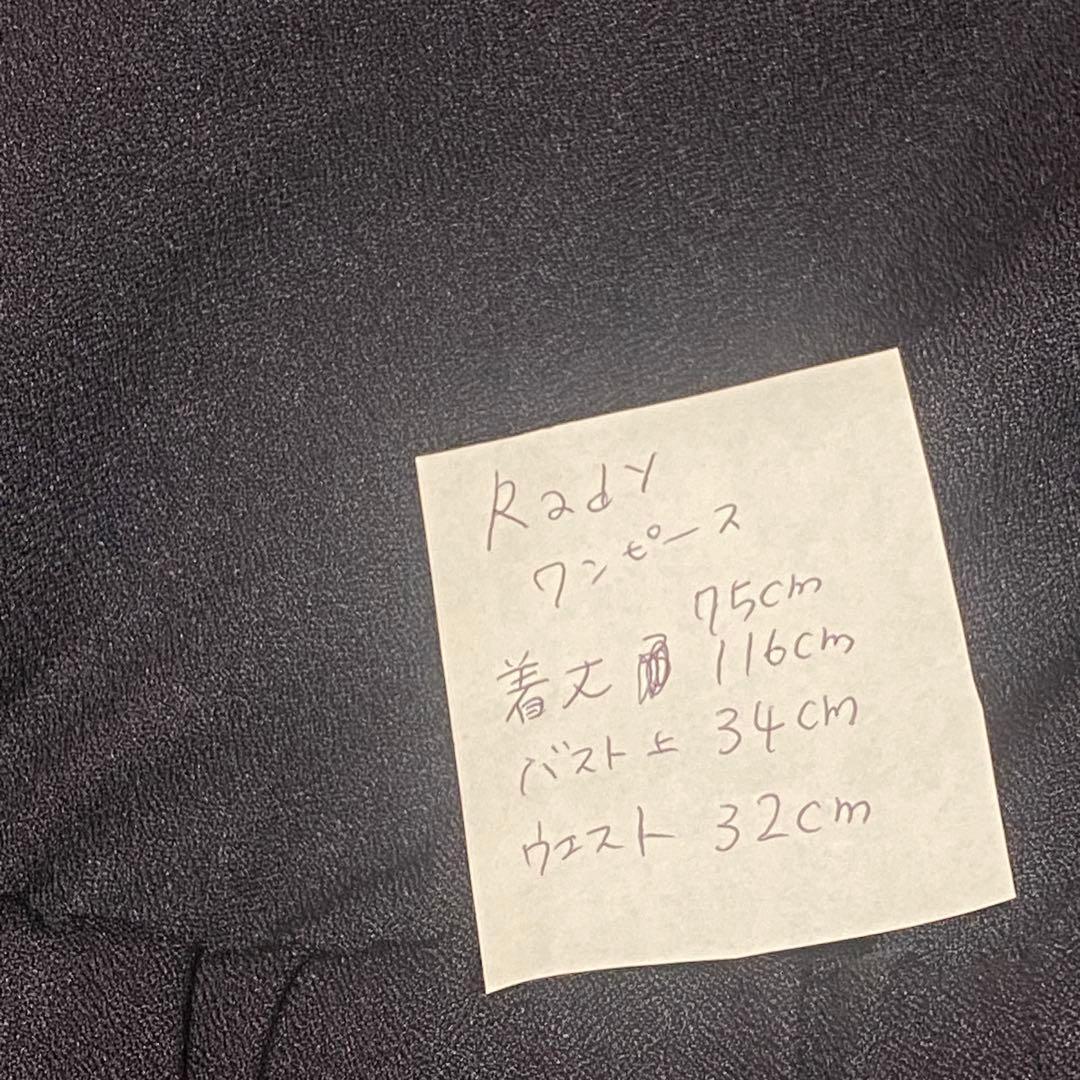 Rady
ワンピース
75cm
着丈 116cm
バスト上 34cm
ウエスト 32cm